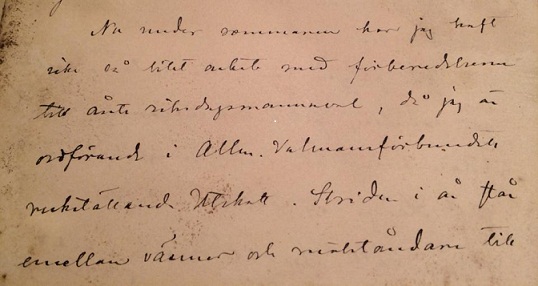 Nu under sommaren har jag haft
icke så litet arbete med förberedelserna
till årets riksdagsmannaval, då jag är
ordförande i Allm. Valmansförbundets
verkställande Utskott. Striden i år står
emellan vänner och motståndare till